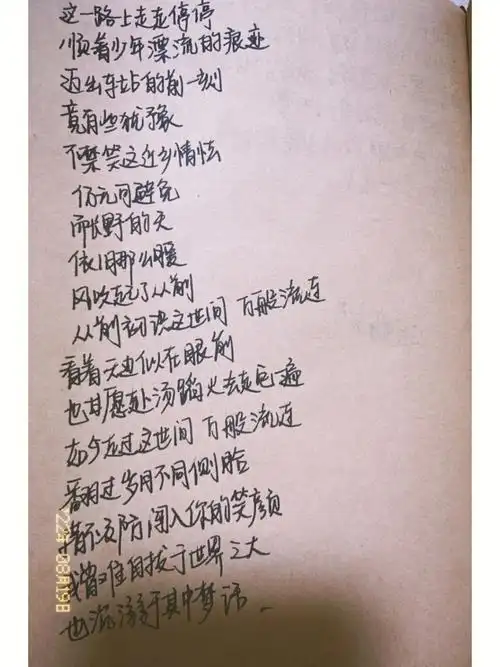 这一路上走走停停
顺着少年漂流的痕迹
迈出车站的前一刻
竟有些犹豫
不禁笑这近乡情怯
仍无可避免
而长野的天
依旧那么暖
风吹起了从前
从前初识这世间 万般流连
看着天边似在眼前
也甘愿赴汤蹈火去走它一遍
如今走过这世间 万般流连
翻过岁月不同侧脸
措不及防闯入你的笑颜
我曾难自拔于世界之大
也沉溺于其中梦话
22 08 19